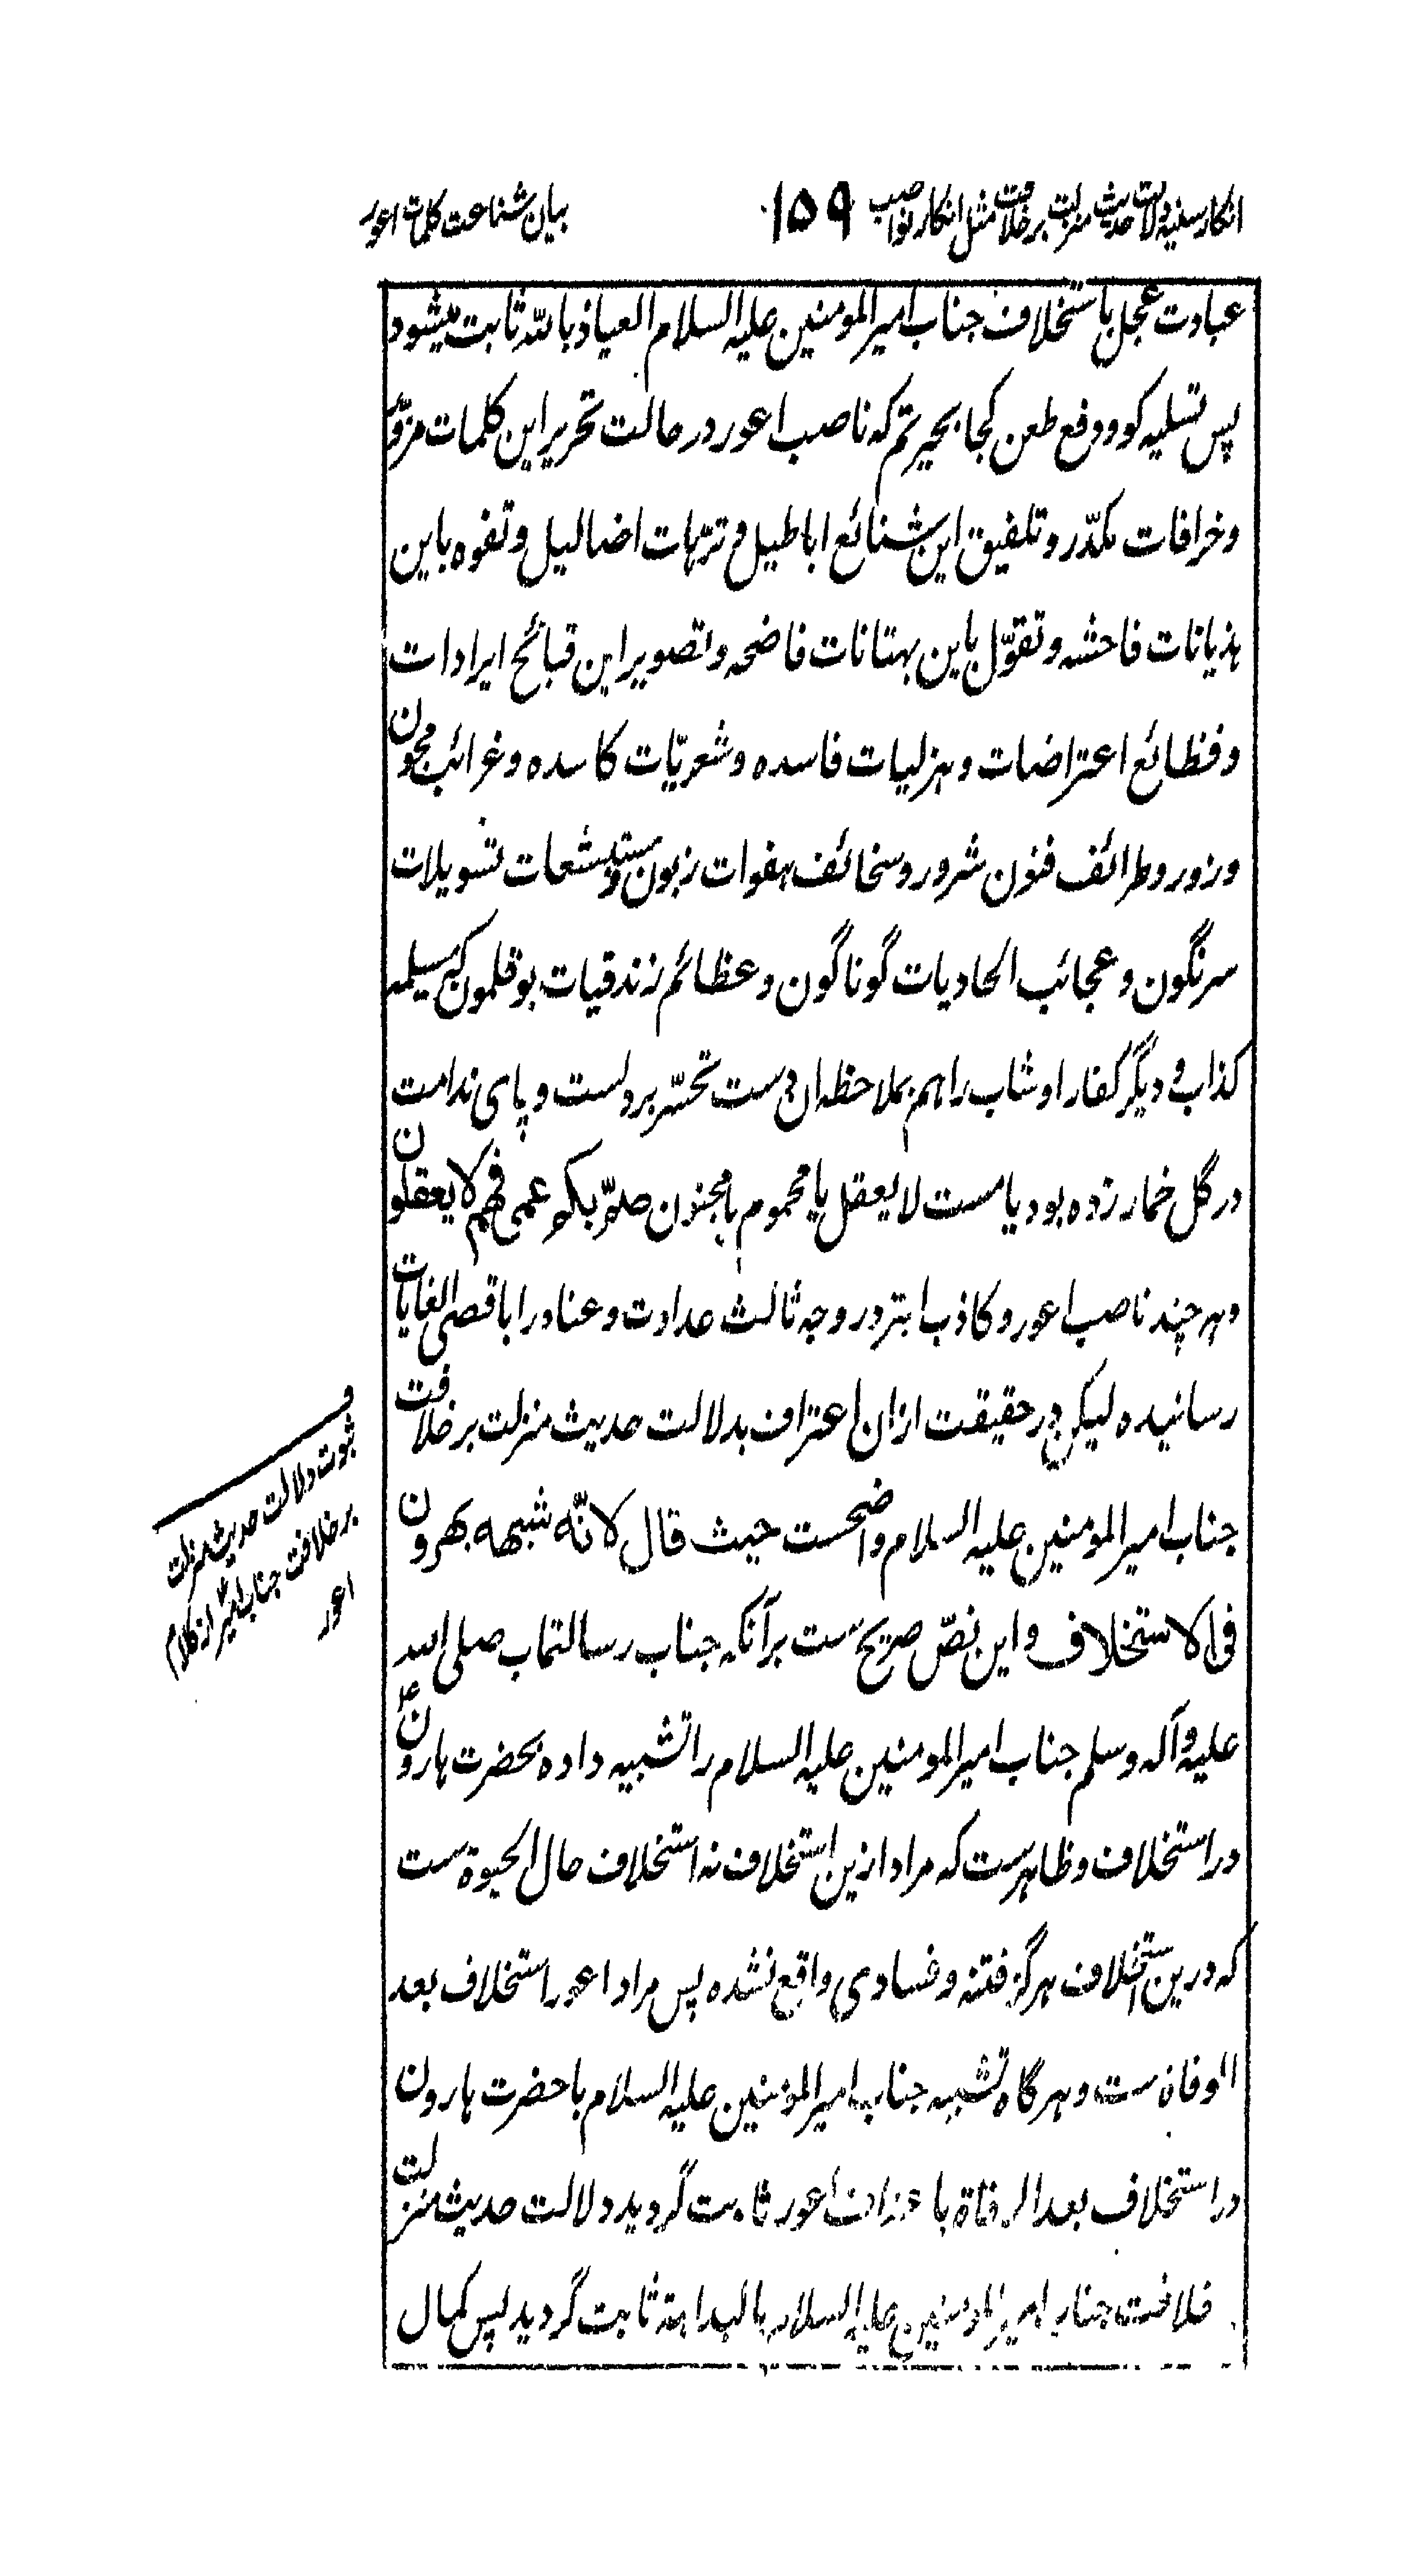 انکار سنیه دلالت حدیث منزلت بر خلافت مثل انکار نواصب ۱۵۹ بیان شناعت کلمات اعور
عبادت عجل باستخلاف جناب امیرالمومنین علیه السلام العیاذ بالله ثابت میشود
پس تسلیه کو و دفع طعن کجا بحیرتم که ناصب اعور در حالت تحریر این کلمات مزوّر
و خرافات مکدّر و تلفیق این شنائع اباطیل و ترّهات اضالیل و تفوه باین
هذیانات فاحشه و تقوّل باین بهتانات فاضحه و تصویر این قبائح ایرادات
و فظائع اعتراضات و هزلیات فاسده و شعریّات کاسده و غرائب مجون
و زور و طرائف فنون شرور و سخائف هفوات زبون و مستبشعات تسویلات
سرنگون و عجائب الحادیات گوناگون و عظائم زندقیات بوقلمون که مسیلمه
کذاب و دیگر کفار اوشاب را هم بملاحظه ان دست تحسّر بر دلست و پای ندامت
در گل خمار زده بود یا مست لا یعقل یا محموم یا مجنون صمّ بکم عمی فهم لا یعقلون
و هر چند ناصب اعور و کاذب ابتر در وجه ثالث عداوت و عناد را باقصی الغایات
رسانیده لیکن در حقیقت ازان اعتراف بدلالت حدیث منزلت بر خلافت
جناب امیرالمومنین علیه السلام واضحست حیث قال لانّه شبهه بهرون
فی الاستخلاف و این نصّ صریح ست برآنکه جناب رسالتماب صلی الله
علیه و آله وسلم جناب امیرالمومنین علیه السلام را تشبیه داده بحضرت هارون ع
در استخلاف و ظاهرست که مراد ازین استخلاف نه استخلاف حال الحیوة ست
که درین استخلاف هرگز فتنه و فسادی واقع نشده پس مراد اعور استخلاف بعد
الوفاة ست و هرگاه تشبیه جناب امیرالمؤمنین علیه السلام با حضرت هارون
در استخلاف بعد الوفاة باعتراف اعور ثابت گردید دلالت حدیث منزلت
خلافت جناب امیرالمؤمنین علیه السلام بالبداهة ثابت گردید پس کمال
ف
ثبوت دلالت حدیث منزلت
بر خلافت جناب امیرؑ از کلام
اعور